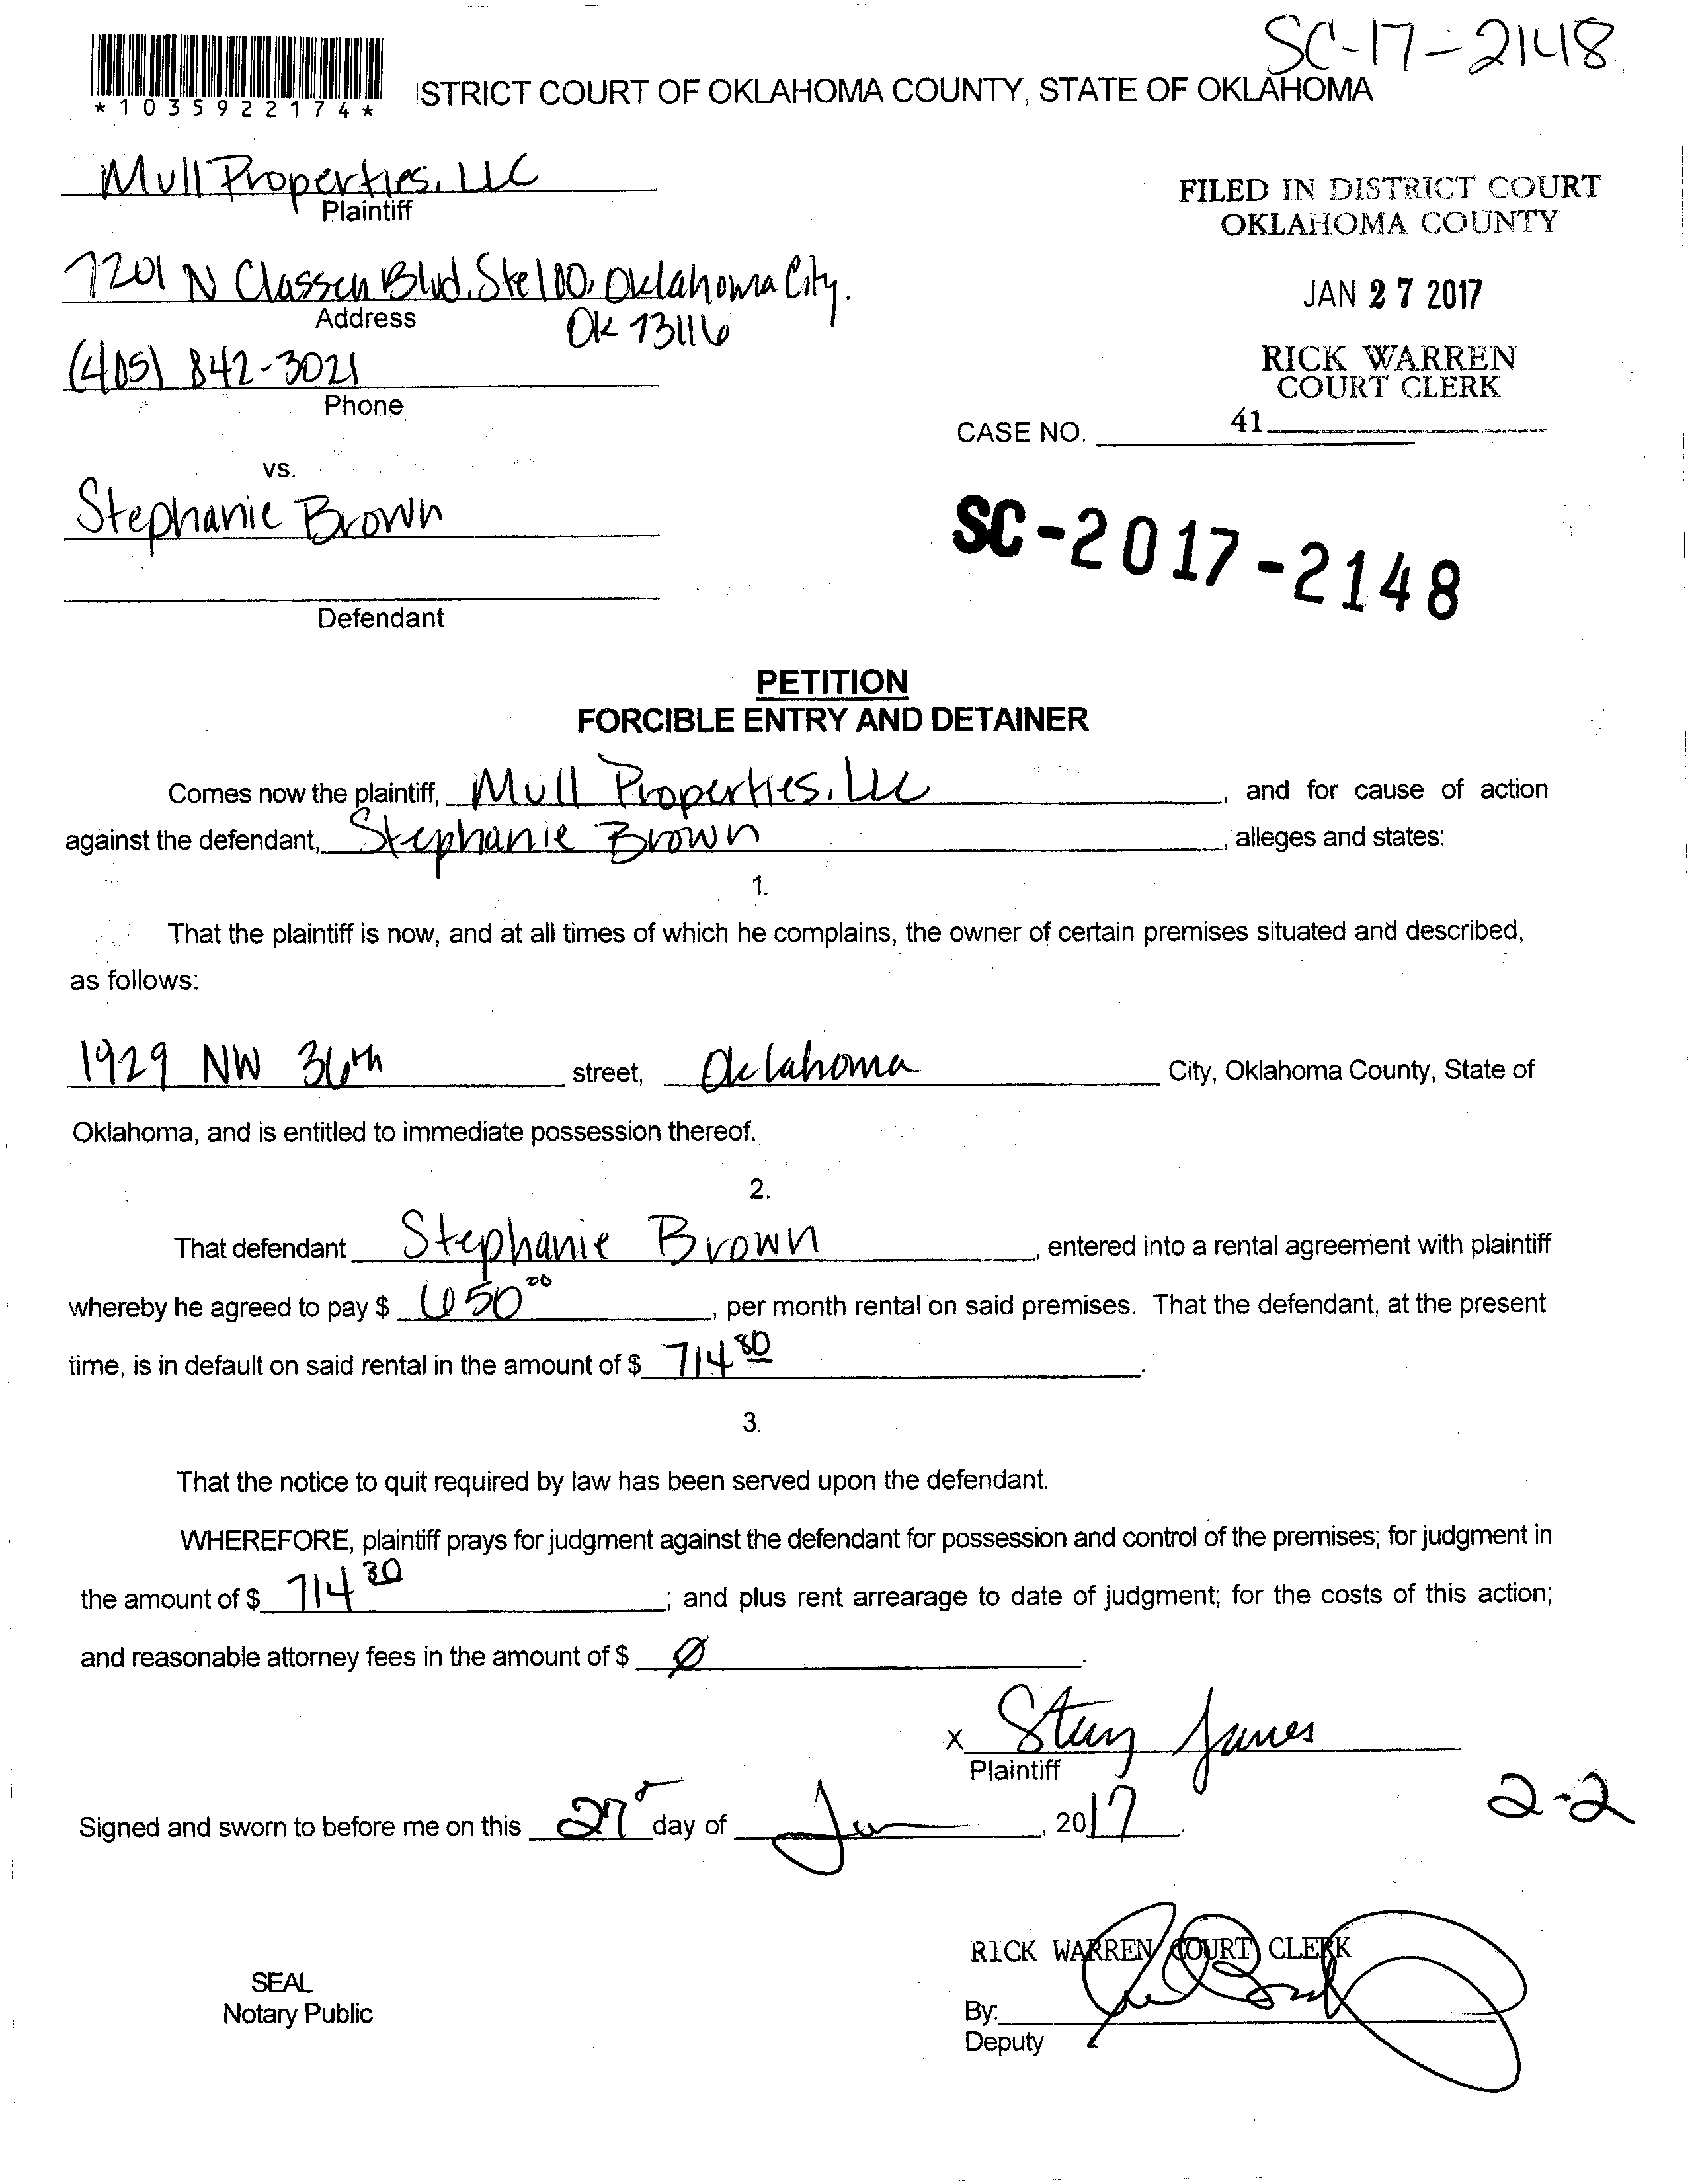 SC-17-2148
*1035922174*
STRICT COURT OF OKLAHOMA COUNTY, STATE OF OKLAHOMA
Mull Properties, LLC
Plaintiff
FILED IN DISTRICT COURT
OKLAHOMA COUNTY
7201 N Classen Blvd. Ste 100, Oklahoma City.
Address
OK 73116
JAN 27 2017
(405) 842-3021
Phone
RICK WARREN
COURT CLERK
CASE NO. 41
vs.
Stephanie Brown
SC-2017-2148
Defendant
PETITION
FORCIBLE ENTRY AND DETAINER
Comes now the plaintiff, Mull Properties, LLC, and for cause of action
against the defendant, Stephanie Brown, alleges and states:
1.
That the plaintiff is now, and at all times of which he complains, the owner of certain premises situated and described,
as follows:
1929 NW 36th street, Oklahoma City, Oklahoma County, State of
Oklahoma, and is entitled to immediate possession thereof.
2.
That defendant Stephanie Brown, entered into a rental agreement with plaintiff
whereby he agreed to pay $ 650 00, per month rental on said premises. That the defendant, at the present
time, is in default on said rental in the amount of $ 714 80.
3.
That the notice to quit required by law has been served upon the defendant.
WHEREFORE, plaintiff prays for judgment against the defendant for possession and control of the premises; for judgment in
the amount of $ 714 80; and plus rent arrearage to date of judgment; for the costs of this action;
and reasonable attorney fees in the amount of $ Ø.
X
Plaintiff
2-2
Signed and sworn to before me on this 27 day of Jan, 2017.
RICK WARREN COURT CLERK
SEAL
Notary Public
By:
Deputy